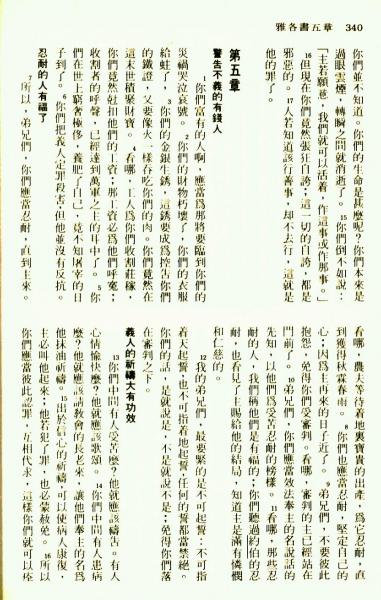 雅各書五章　340
你們並不知道。你們的生命是甚麼呢？你們本來是
過眼雲煙，轉瞬之間就消逝了。15你們倒不如說：
「主若願意，我們就可以活着，作這事或作那事。」
16但現在你們竟然張狂自誇；這一切的自誇，都是
邪惡的。17人若知道該行善事，却不去行，這就是
他的罪了。
第五章
警告不義的有錢人
1你們富有的人啊，應當爲那將要臨到你們的
災禍哭泣哀號。2你們的財物朽壞了，你們的衣服
給蛀了，3你們的金銀生銹，這銹要成爲控告你們
的鐵證，又要像火一樣吞吃你們的肉。你們竟然在
這末世積聚財寶。4看哪，工人爲你們收割莊稼，
你們竟然尅扣他們的工資；那工資必爲他們呼寃；
收割者的呼聲，已經達到萬軍之主的耳中了。5你
們在世上窮奢極侈，養肥了自己，竟不知屠宰的日
子到了。6你們把義人定罪殺害，但他並沒有反抗。
忍耐的人有福了
7所以，弟兄們，你們應當忍耐，直到主來。
看哪，農夫等待着地裏寶貴的出產，爲它忍耐，直
到獲得秋霖春雨。8你們也應當忍耐，堅定自己的
心；因爲主再來的日子近了。9弟兄們，不要彼此
抱怨，免得你們受審判。看哪，審判的主已經站在
門前了。10弟兄們，你們應當效法奉主的名說話的
先知，以他們爲受苦忍耐的榜樣。11看哪，那些忍
耐的人，我們稱他們是有福的；你們聽過約伯的忍
耐，也看見了主賜給他的結局，知道主是滿有憐憫
和仁慈的。
12我的弟兄們，最要緊的是不可起誓；不可指
着天起誓，也不可指着地起誓，任何的誓都當禁絕。
你們的話，是就說是，不是就說不是；免得你們落
在審判之下。
義人的祈禱大有功效
13你們中間有人受苦麼？他就應該禱吿。有人
心情愉快麼？他就應該歌頌。14你們中間有人患病
麼？他就應該請教會的長老來，讓他們奉主的名爲
他抹油祈禱。15出於信心的祈禱，可以使病人康復，
主必叫他起來；他若犯了罪，也必蒙赦免。16所以
你們應當彼此認罪，互相代求，這樣你們就可以痊